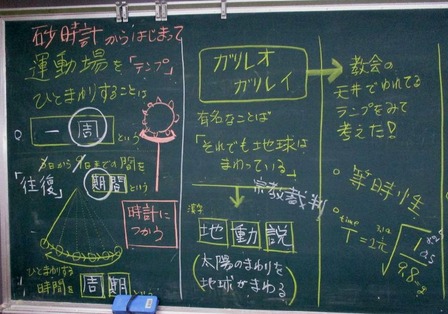 砂時計からはじまって
運動場を「テンプ」
ひとまわりすることは
一周という
日から 日までの間を
「往復」期間という
時計につかう
ひとまわりする
時間を周期という
ガリレオ
ガリレイ
有名なことば
「それでも地球は
まわっている」
宗教裁判
漢字
地動説
(太陽のまわりを
地球がまわる)
教会の
天井でゆれてる
ランプをみて
考えた!!
等時性
time
T=2π√
1
9.8